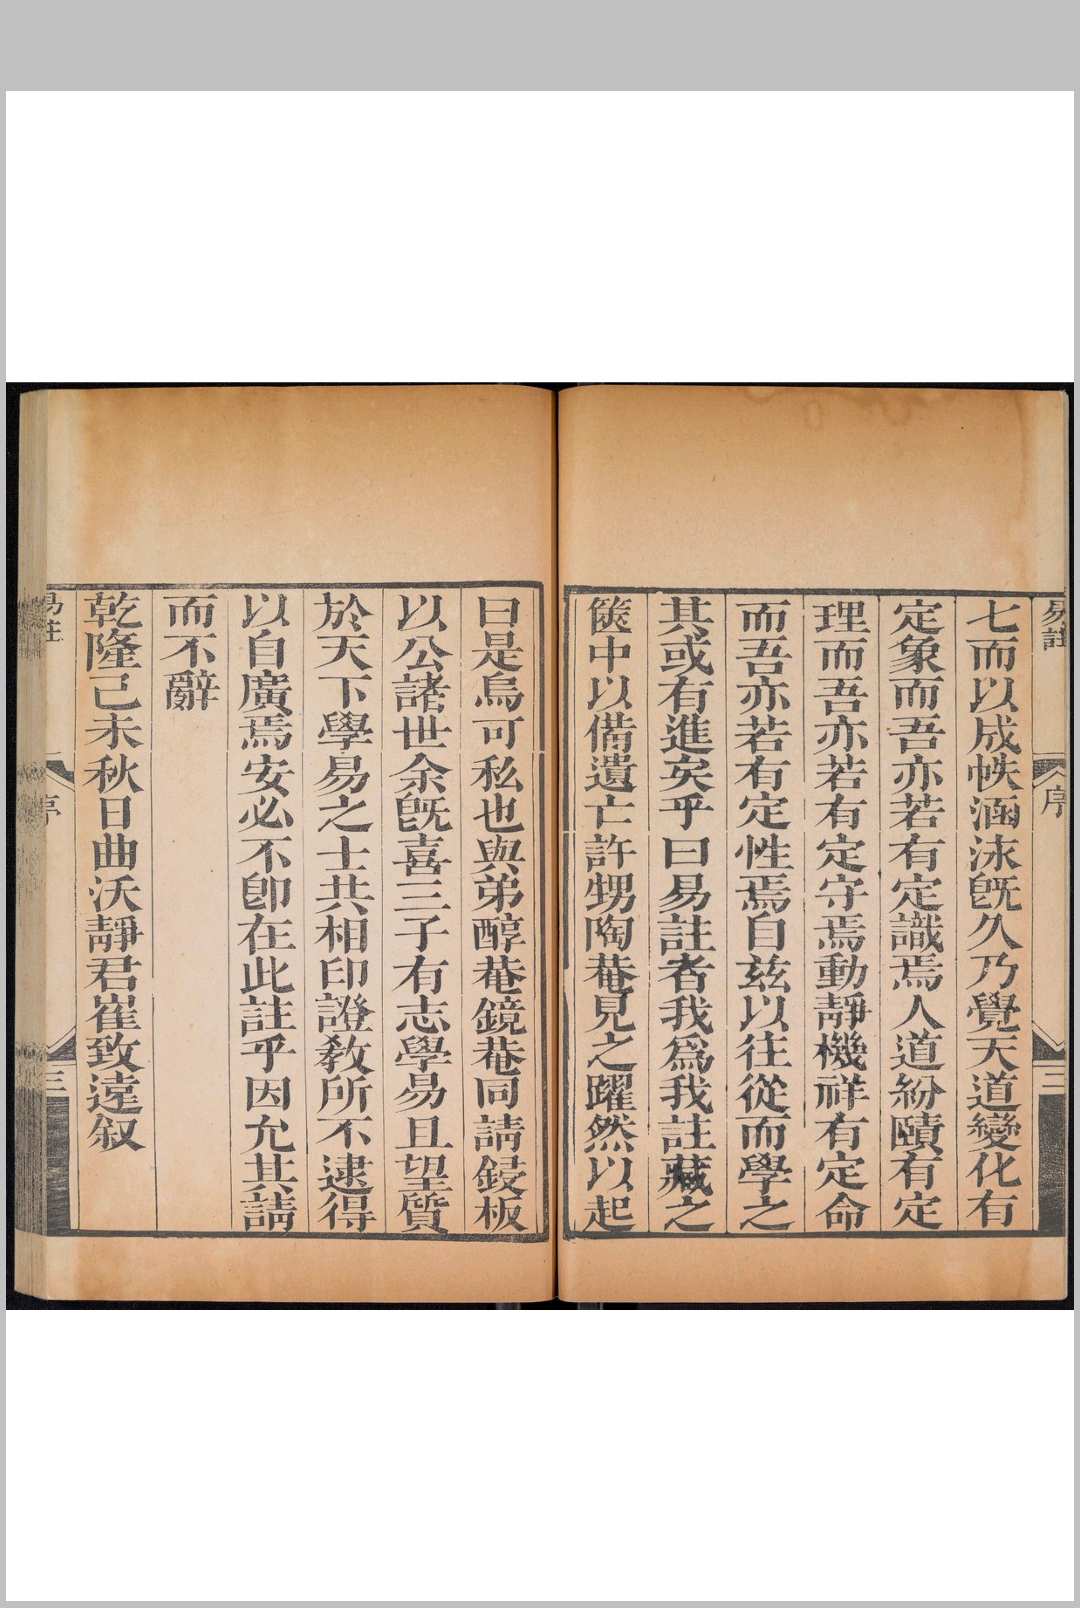 易註
序
七而以成帙涵泳旣久乃覺天道變化有
定象而吾亦若有定識焉人道紛賾有定
理而吾亦若有定守焉動靜機祥有定命
而吾亦若有定性焉自兹以往從而學之
其或有進矣乎曰易註者我爲我註藏之
篋中以備遺亡許甥陶菴見之躍然以起
曰是烏可私也與弟醇菴鏡菴同請鋟板
以公諸世余旣喜三子有志學易且望質
於天下學易之士共相印證教所不逮得
以自廣焉安必不卽在此註乎因允其請
而不辭
乾隆己未秋日曲沃靜君崔致遠叙
易註
序
三